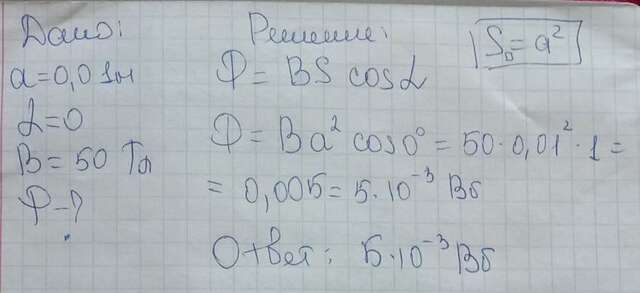 Дано:
a = 0,01 м
α = 0
B = 50 Тл
Ф - ?
Решение:
S□ = a²
Ф = BS cos α
Ф = Ba² cos 0° = 50 · 0,01² · 1 =
= 0,005 = 5 · 10⁻³ Вб
Ответ: 5 · 10⁻³ Вб